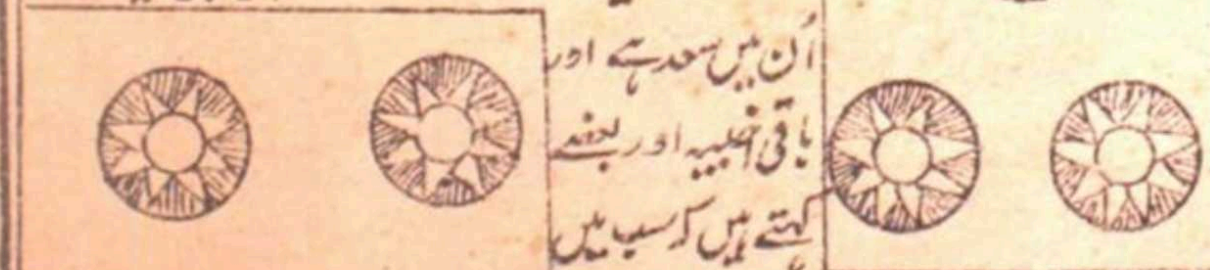 اُن میں سعد ہے اور
باقی اخبیہ اور بعضے
کہتے ہیں کہ سب میں